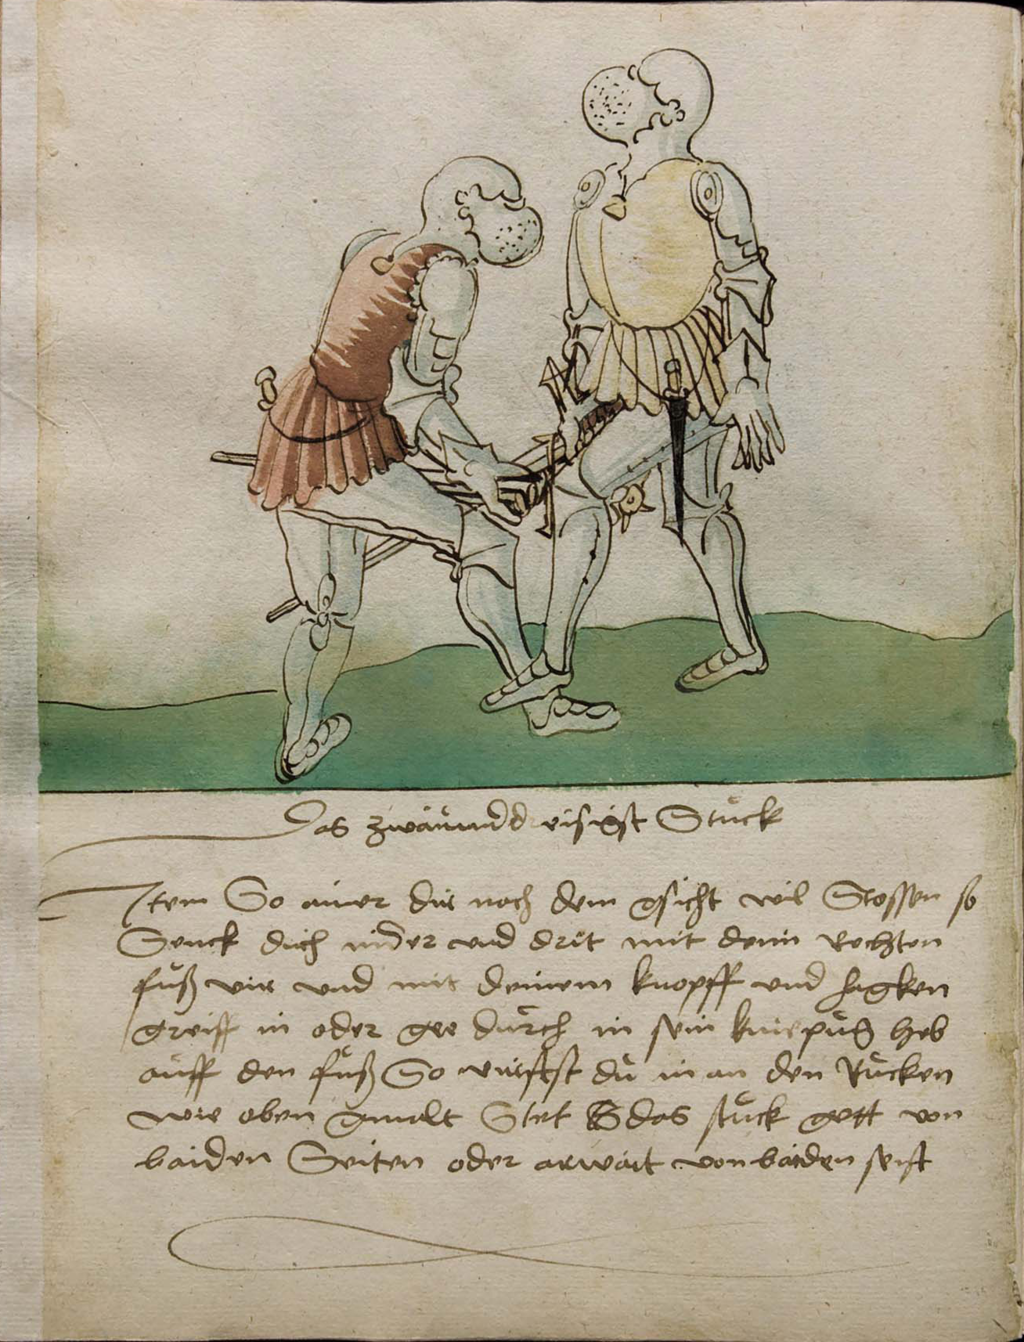 Das zwaiundd risigst Stuck
Item So ainer dir nach dem gsicht wil Stossen so
Senck dich nider und drit mit dem Rechten
fuß vir und mit deinem knopff und hagken
greiff in oder gee durch in sein kniepug heb
auff den fuß So wirffst du in an den Rucken
wie oben gmalt Stet das stuck gett von
baiden Seiten oder arwait von baiden